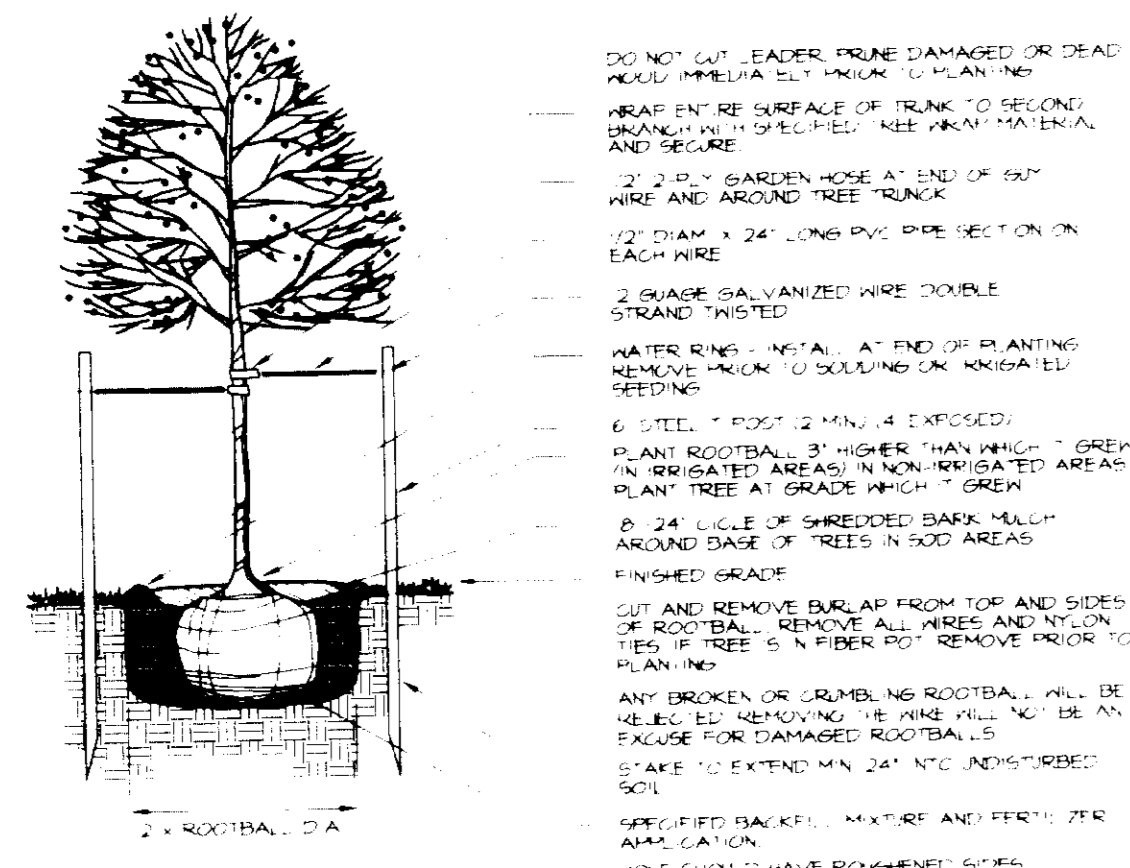 DO NOT CUT LEADER. PRUNE DAMAGED OR DEAD
WOOD IMMEDIATELY PRIOR TO PLANTING
WRAP ENTIRE SURFACE OF TRUNK TO SECOND
BRANCH WITH SPECIFIED TREE WRAP MATERIAL
AND SECURE.
2-PLY GARDEN HOSE AT END OF GUY
WIRE AND AROUND TREE TRUNCK
1/2" DIAM X 24" LONG PVC PIPE SECTION ON
EACH WIRE
2 GUAGE GALVANIZED WIRE DOUBLE
STRAND TWISTED
WATER RING - INSTALL AT END OF PLANTING
REMOVE PRIOR TO SODDING OR IRRIGATED
SEEDING
6 STEEL T POST (2 MIN) (4 EXPOSED)
PLANT ROOTBALL 3" HIGHER THAN WHICH IT GREW
(IN IRRIGATED AREAS) IN NON-IRRIGATED AREAS
PLANT TREE AT GRADE WHICH IT GREW
8 24" CICLE OF SHREDDED BARK MULCH
AROUND BASE OF TREES IN SOD AREAS
FINISHED GRADE
CUT AND REMOVE BURLAP FROM TOP AND SIDES
OF ROOTBALL. REMOVE ALL WIRES AND NYLON
TIES IF TREE IS IN FIBER POT REMOVE PRIOR TO
PLANTING
ANY BROKEN OR CRUMBLING ROOTBALL WILL BE
REJECTED REMOVING THE WIRE WILL NOT BE AN
EXCUSE FOR DAMAGED ROOTBALLS
STAKE TO EXTEND MIN 24" INTO UNDISTURBED
SOIL
SPECIFIED BACKFILL MIXTURE AND FERTILIZER
APPLICATION.
HOLE SHOULD HAVE ROUGHENED SIDES
2 x ROOTBALL DIA